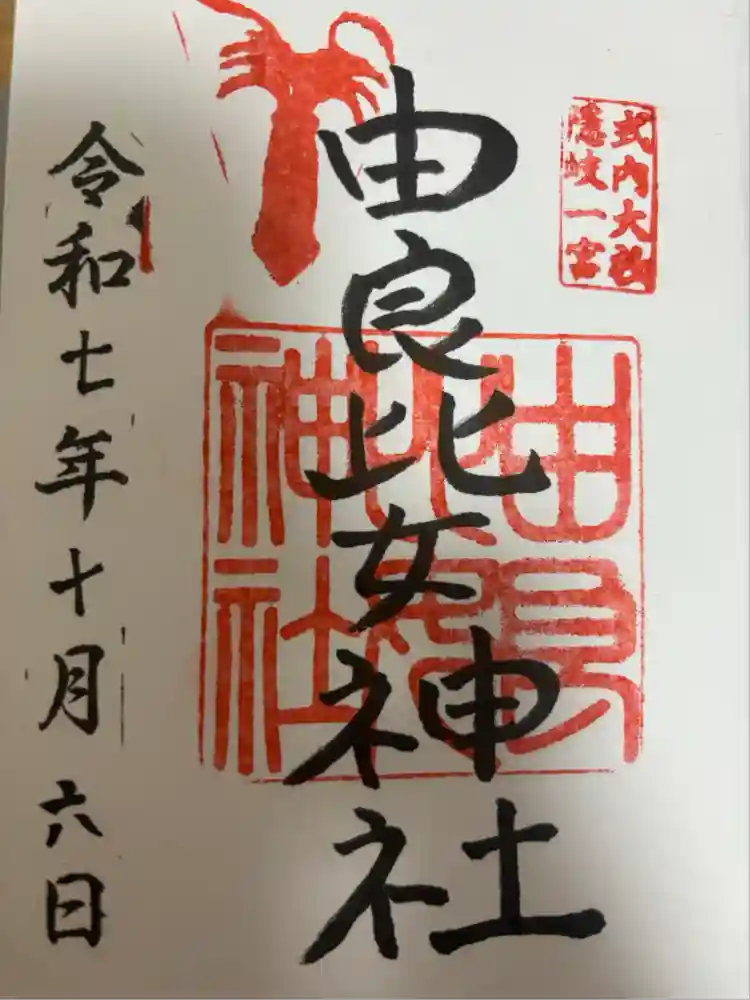 式内大社
隠岐一宮
由良比女神社
由良比女神社
令和七年十月六日